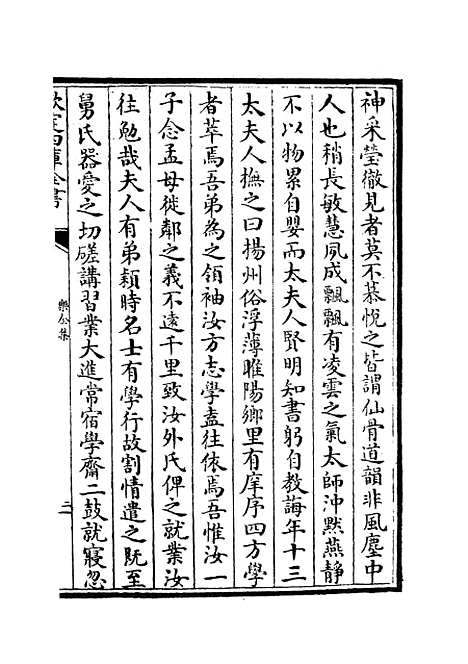 神采瑩徹見者莫不慕悅之皆謂仙骨道韻非風塵中
人也稍長敏慧夙成飄飄有凌雲之氣太師沖默燕靜
不以物累自嬰而太夫人賢明知書躬自教誨年十三
太夫人撫之曰揚州俗浮薄睢陽鄉里有庠序四方學
者萃焉吾弟為之領袖汝方志學盍往依焉吾惟汝一
子念孟母徙鄰之義不遠千里致汝外氏俾之就業汝
往勉哉夫人有弟潁時名士有學行故割情遣之既至
舅氏器愛之切磋講習業大進常宿學齋二鼓就寢忽
欽定四庫全書
樂全集
二